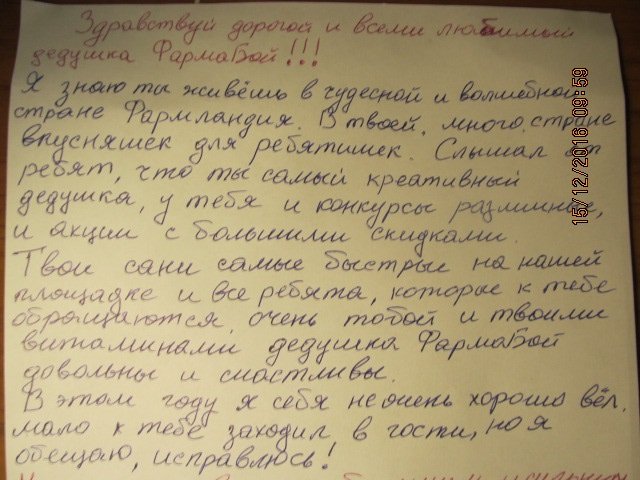 Здравствуй дорогой и всеми любимый
дедушка ФармаБой!!!
Я знаю ты живёшь в чудесной и волшебной
стране Фармландия. В твоей, много, стране
вкусняшек для ребятишек. Слышал от
ребят, что ты самый креативный
дедушка, у тебя и конкурсы различные,
и акции с большими скидками.
Твои сани самые быстрые на нашей
площадке и все ребята, которые к тебе
обращаются, очень тобой и твоими
витаминами дедушка ФармаБой
довольны и счастливы.
В этом году я себя не очень хорошо вёл,
мало к тебе заходил в гости, но я
обещаю, исправлюсь!
15/12/2016 09:59